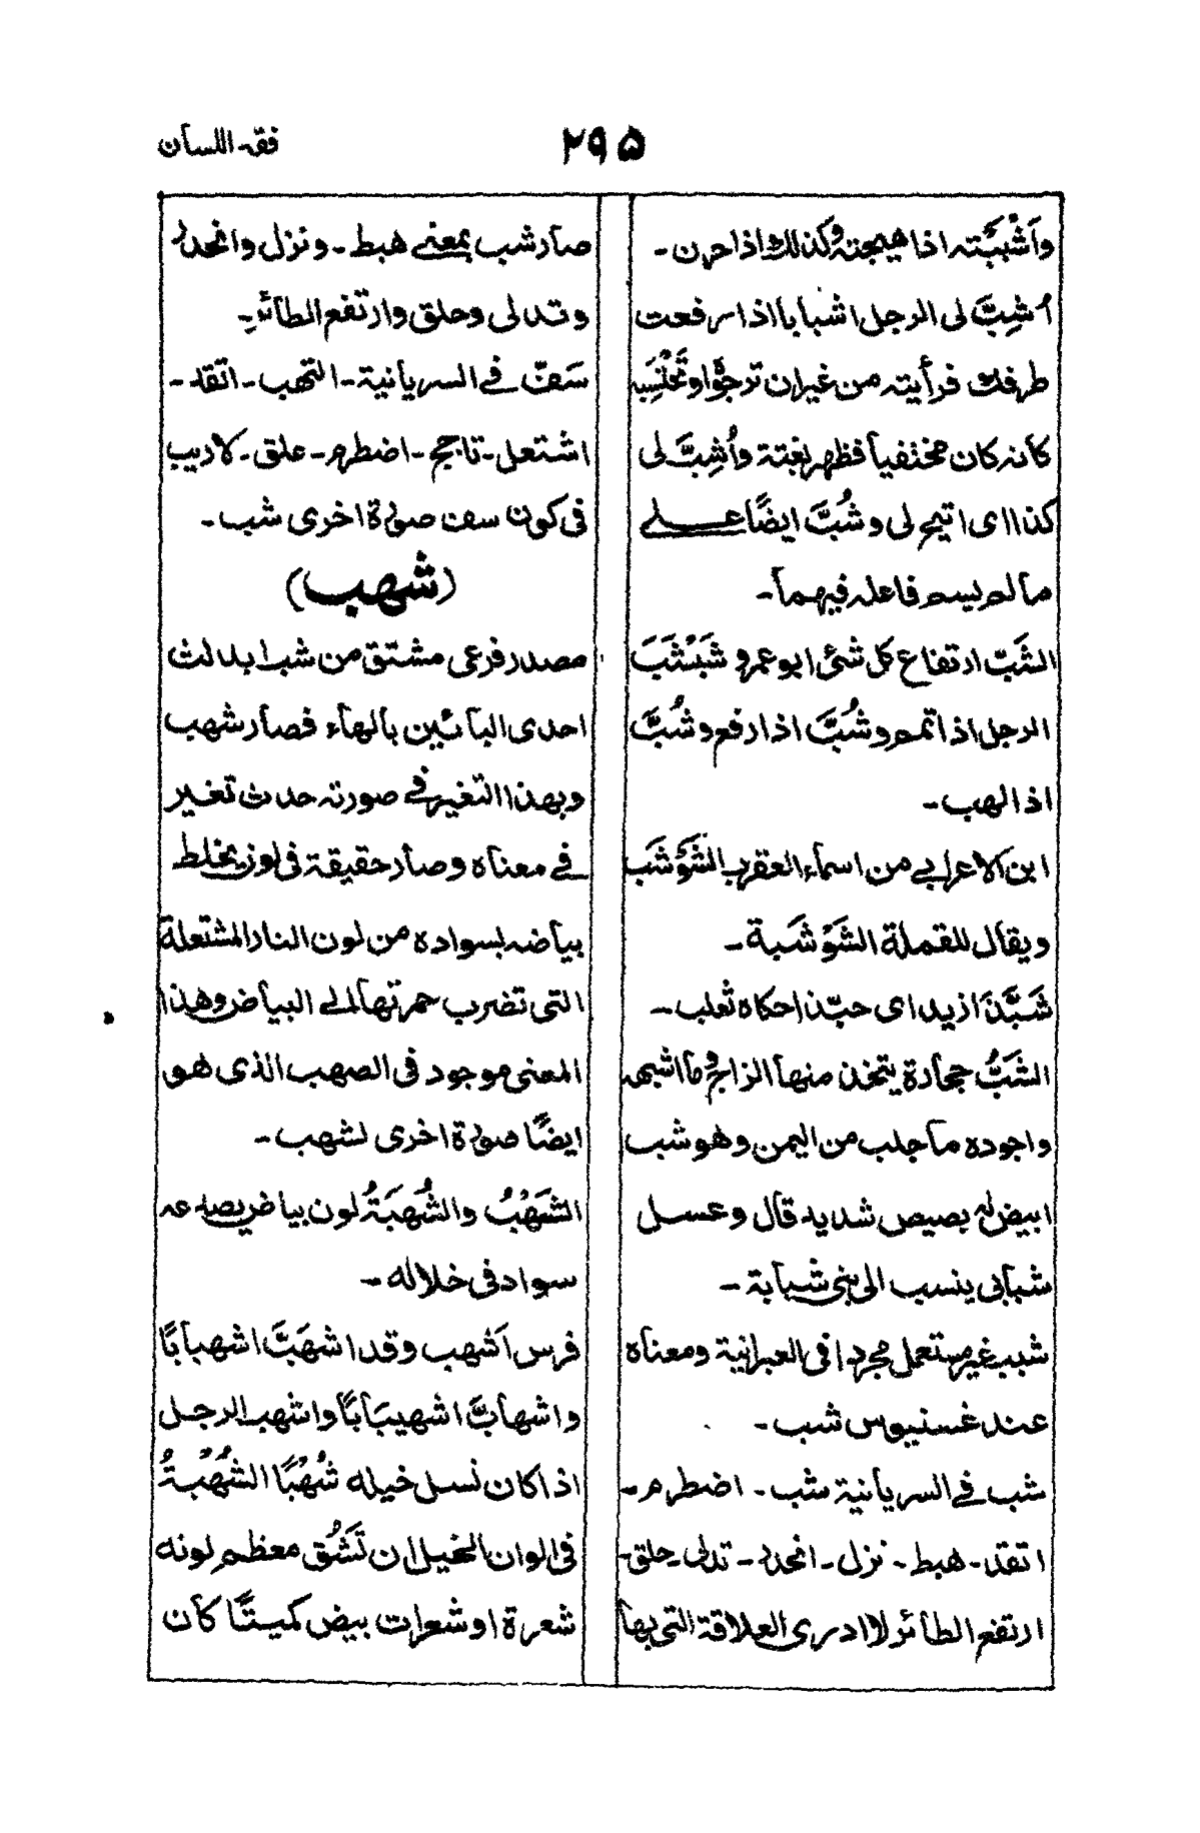 فقہ اللسان
۲۹۵
واَشْبَبْتہ اذا هیجتہ وکذلك اذا حرن۔
اُشِبَّ لی الرجل اشبابا اذا رفعت
طرفك فرأیتہ من غیر ان ترجوہ او تَحْتَسِبہ
کانہ کان مختفیا فظهر بغتة واُشِبَّ لی
کذا ای اتیح لی وشُبَّ ایضًا علے
ما لم یسم فاعلہ فیهما۔
الشَبّ ارتفاع کل شئ ابو عمرو شَبْشَبَ
الرجل اذا تمم وشُبَّ اذا رفع وشُبَّ
اذا الهب۔
ابن الاعرابی من اسماء العقرب الشَوْشَب
ویقال للقملة الشَوْشَبة۔
شَبَّذَا زید ای حبّذا حکاہ ثعلب۔
الشَبُّ حجارة یتخذ منها الزاج وما اشبهہ
واجودہ ما جلب من الیمن وهو شب
ابیض لہ بصیص شدید قال وعسل
شبابی ینسب الی بنی شبابة۔
شبب غیر مستعمل مجردا فی العبرانیة ومعناہ
عند غسنیوس شب۔
شب فے السریانیة شب۔ اضطرم۔
اتقد۔ هبط۔ نزل۔ انحدر۔ تدلی۔ حلق۔
ارتفع الطائر لا ادری العلاقة التی بها
صار شب بمعنی هبط۔ ونزل وانحدر
وتدلی وحلق وارتفع الطائر۔
سَفّ فے السریانیة۔ التهب۔ اتقد۔
اشتعل۔ تاجج۔ اضطرم۔ علق۔ لاریب
فی کون سف صورة اخری شب۔
(شهب)
مصدر فرعی مشتق من شب ابدلت
احدی البائین بالهاء فصار شهب
وبهذا التغیر فے صورتہ حدث تغیر
فے معناہ وصار حقیقة فی لون یخلط
بیاضہ بسوادہ من لون النار المشتعلة
التی تضرب حمرتها الی البیاض وهذا
المعنی موجود فی الصهب الذی هو
ایضًا صورة اخری لشهب۔
الشَهْبُ والشُهبَةُ لون بیاض یصدعہ
سواد فی خلاله۔
فرس اَشهب وقد اشهَبَّ اشهبابًا
واشهابَّ اشهیبَابًا واشهب الرجل
اذا کان نسل خیله شُهْبًا الشُهْبَةُ
فی الوان الخیل ان تَشُق معظم لونه
شعرة او شعرات بیض کمیتًا کان